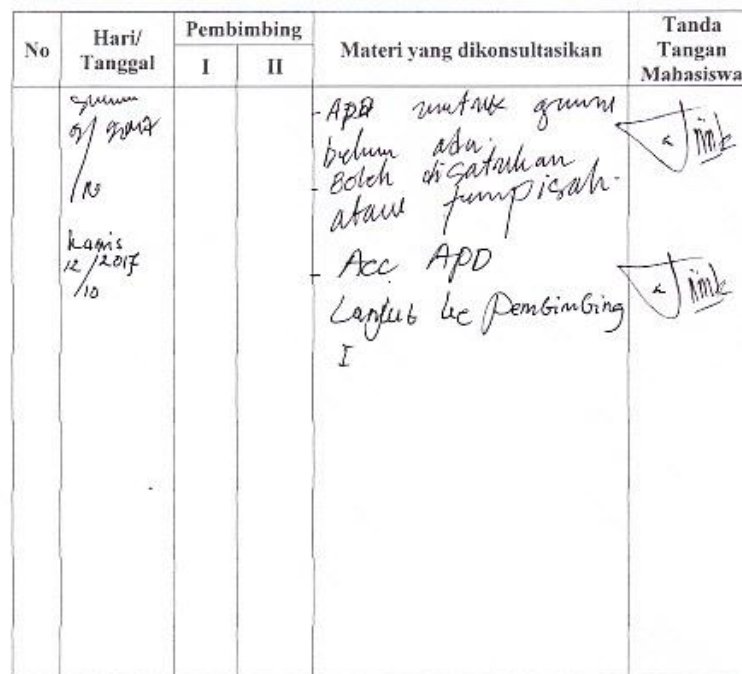 No Hari/ Tanggal Pembimbing I II Materi yang dikonsultasikan Tanda Tangan Mahasiswa
9/ 2017
/10
- APD untuk
belum ada.
- Boleh disatukan
atau
Kamis
12/2017
/10
- Acc APD
Lanjut ke Pembimbing
I